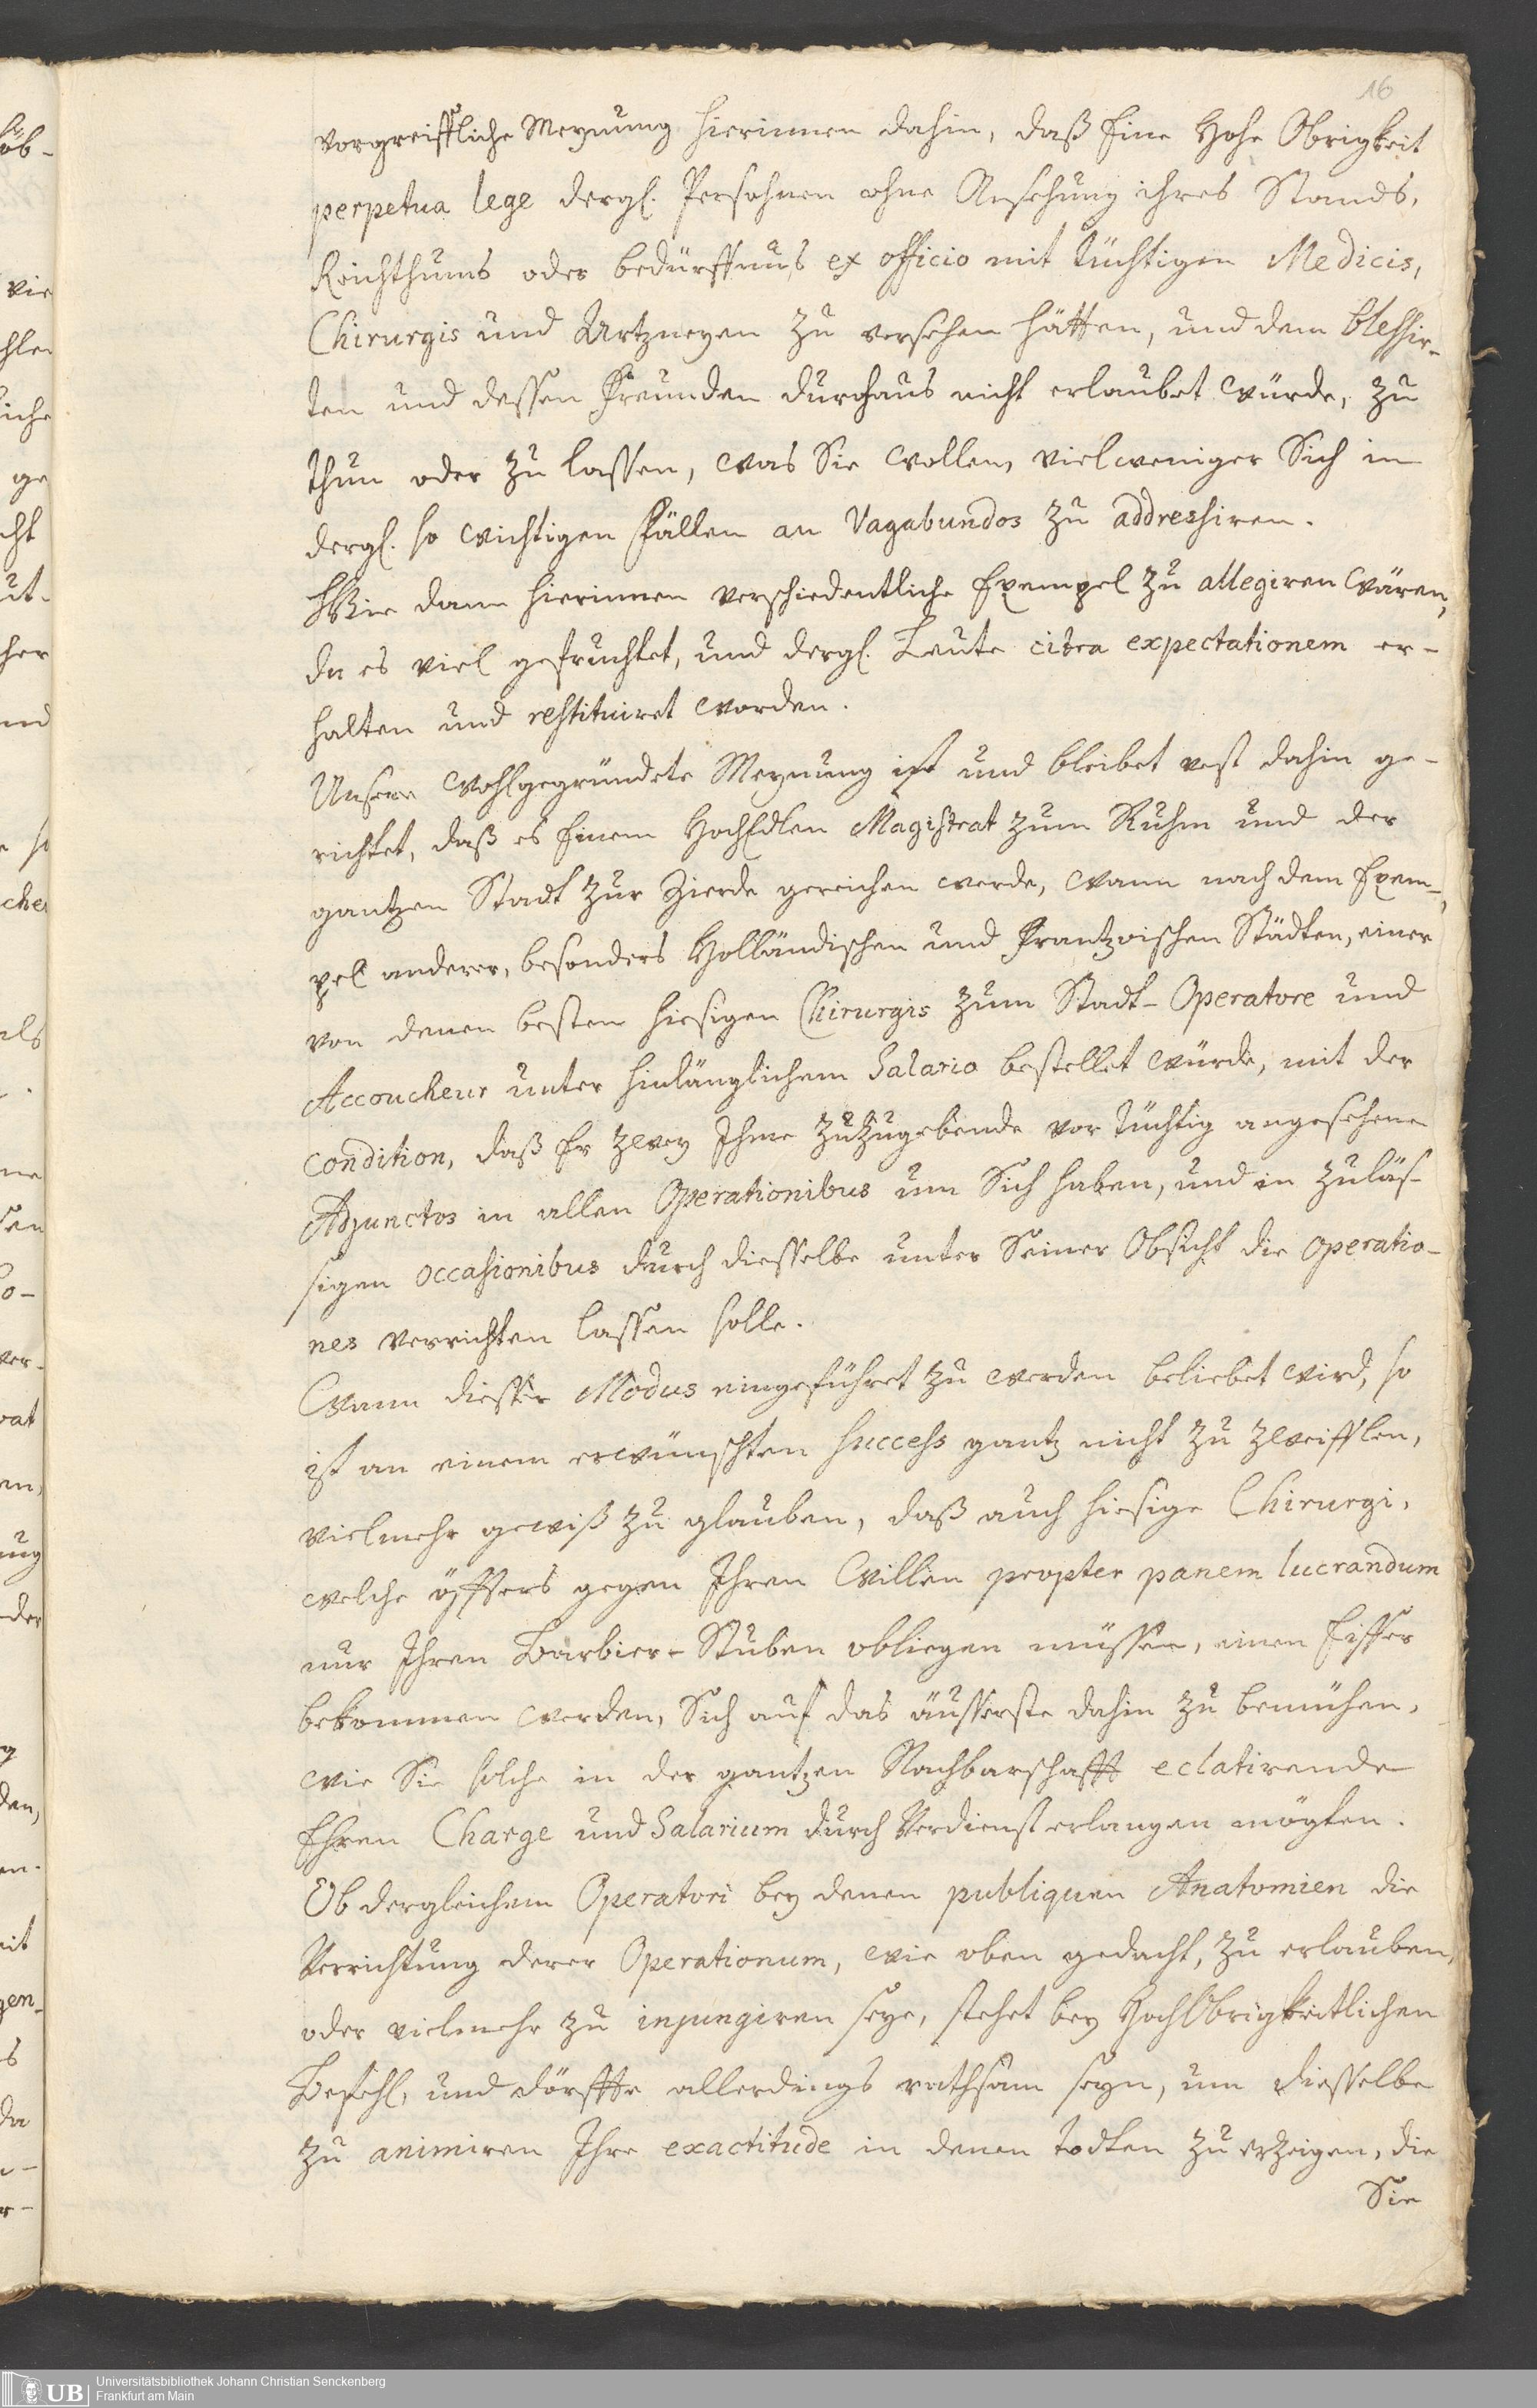 16
vorgreiffliche Meynung hierinnen dahin, daß Eine Hohe Obrigkeit
perpetua lege dergl. Persohnen ohne Ansehung ihres Stands,
Reichthums oder bedürffnus ex officio mit tüchtigen Medicis,
Chirurgis und Artzneyen zu versehen hätten, und dem blessir-
ten und dessen Freunden durchaus nicht erlaubet würde, zu
thun oder zu lassen, was Sie wollen, vielweniger Sich in
dergl. so wichtigen Fällen an Vagabundos zu addressiren.
Wie dann hierinnen verschiedentliche Exempel zu allegiren wären,
da es viel gefruchtet, und dergl. Leute citra expectationem er-
halten und restituiret worden.
Unsere wohlgegründete Meynung ist und bleibet vest dahin ge-
richtet, daß es Einem HochEdlen Magistrat zum Ruhm und der
gantzen Stadt zur Zierde gereichen werde, wann nach dem Exem-
pel anderer, besonders Holländischen und Frantzoischen Städten, einer
von denen besten hiesigen Chirurgis zum Stadt-Operatore und
Accoucheur unter hinlänglichem Salario bestellet würde, mit der
condition, daß Er zwey Ihme zuzugebende vor tüchtig angesehene
Adjunctos in allen Operationibus um Sich haben, und in zuläs-
sigen occasionibus durch diesselbe unter Seiner Obsicht die operatio-
nes verrichten lassen solle.
Wann diesser Modus eingeführet zu werden beliebet wird, so
ist an einem erwünschten success gantz nicht zu zweifflen,
vielmehr gewiß zu glauben, daß auch hiesige Chirurgi,
welche öffters gegen Ihren Willen propter panem lucrandum
nur Ihren Barbier-Stuben obliegen müssen, einen Eiffer
bekommen werden, Sich auf das äusserste dahin zu bemühen,
wie Sie solche in der gantzen Nachbarschafft eclatirende
Ehren Charge und Salarium durch Verdienst erlangen mögten.
Ob dergleichem Operatori bey denen publiquen Anatomien die
Verrichtung derer Operationum, wie oben gedacht, zu erlauben,
oder vielmehr zu injungiren seye, stehet bey HochObrigkeitlichen
Befehl, und dörffte allerdings rathsam seyn, um diesselbe
zu animiren Ihre exactitude in denen todten zu erzeigen, die
Sie
UB
Universitätsbibliothek Johann Christian Senckenberg
Frankfurt am Main